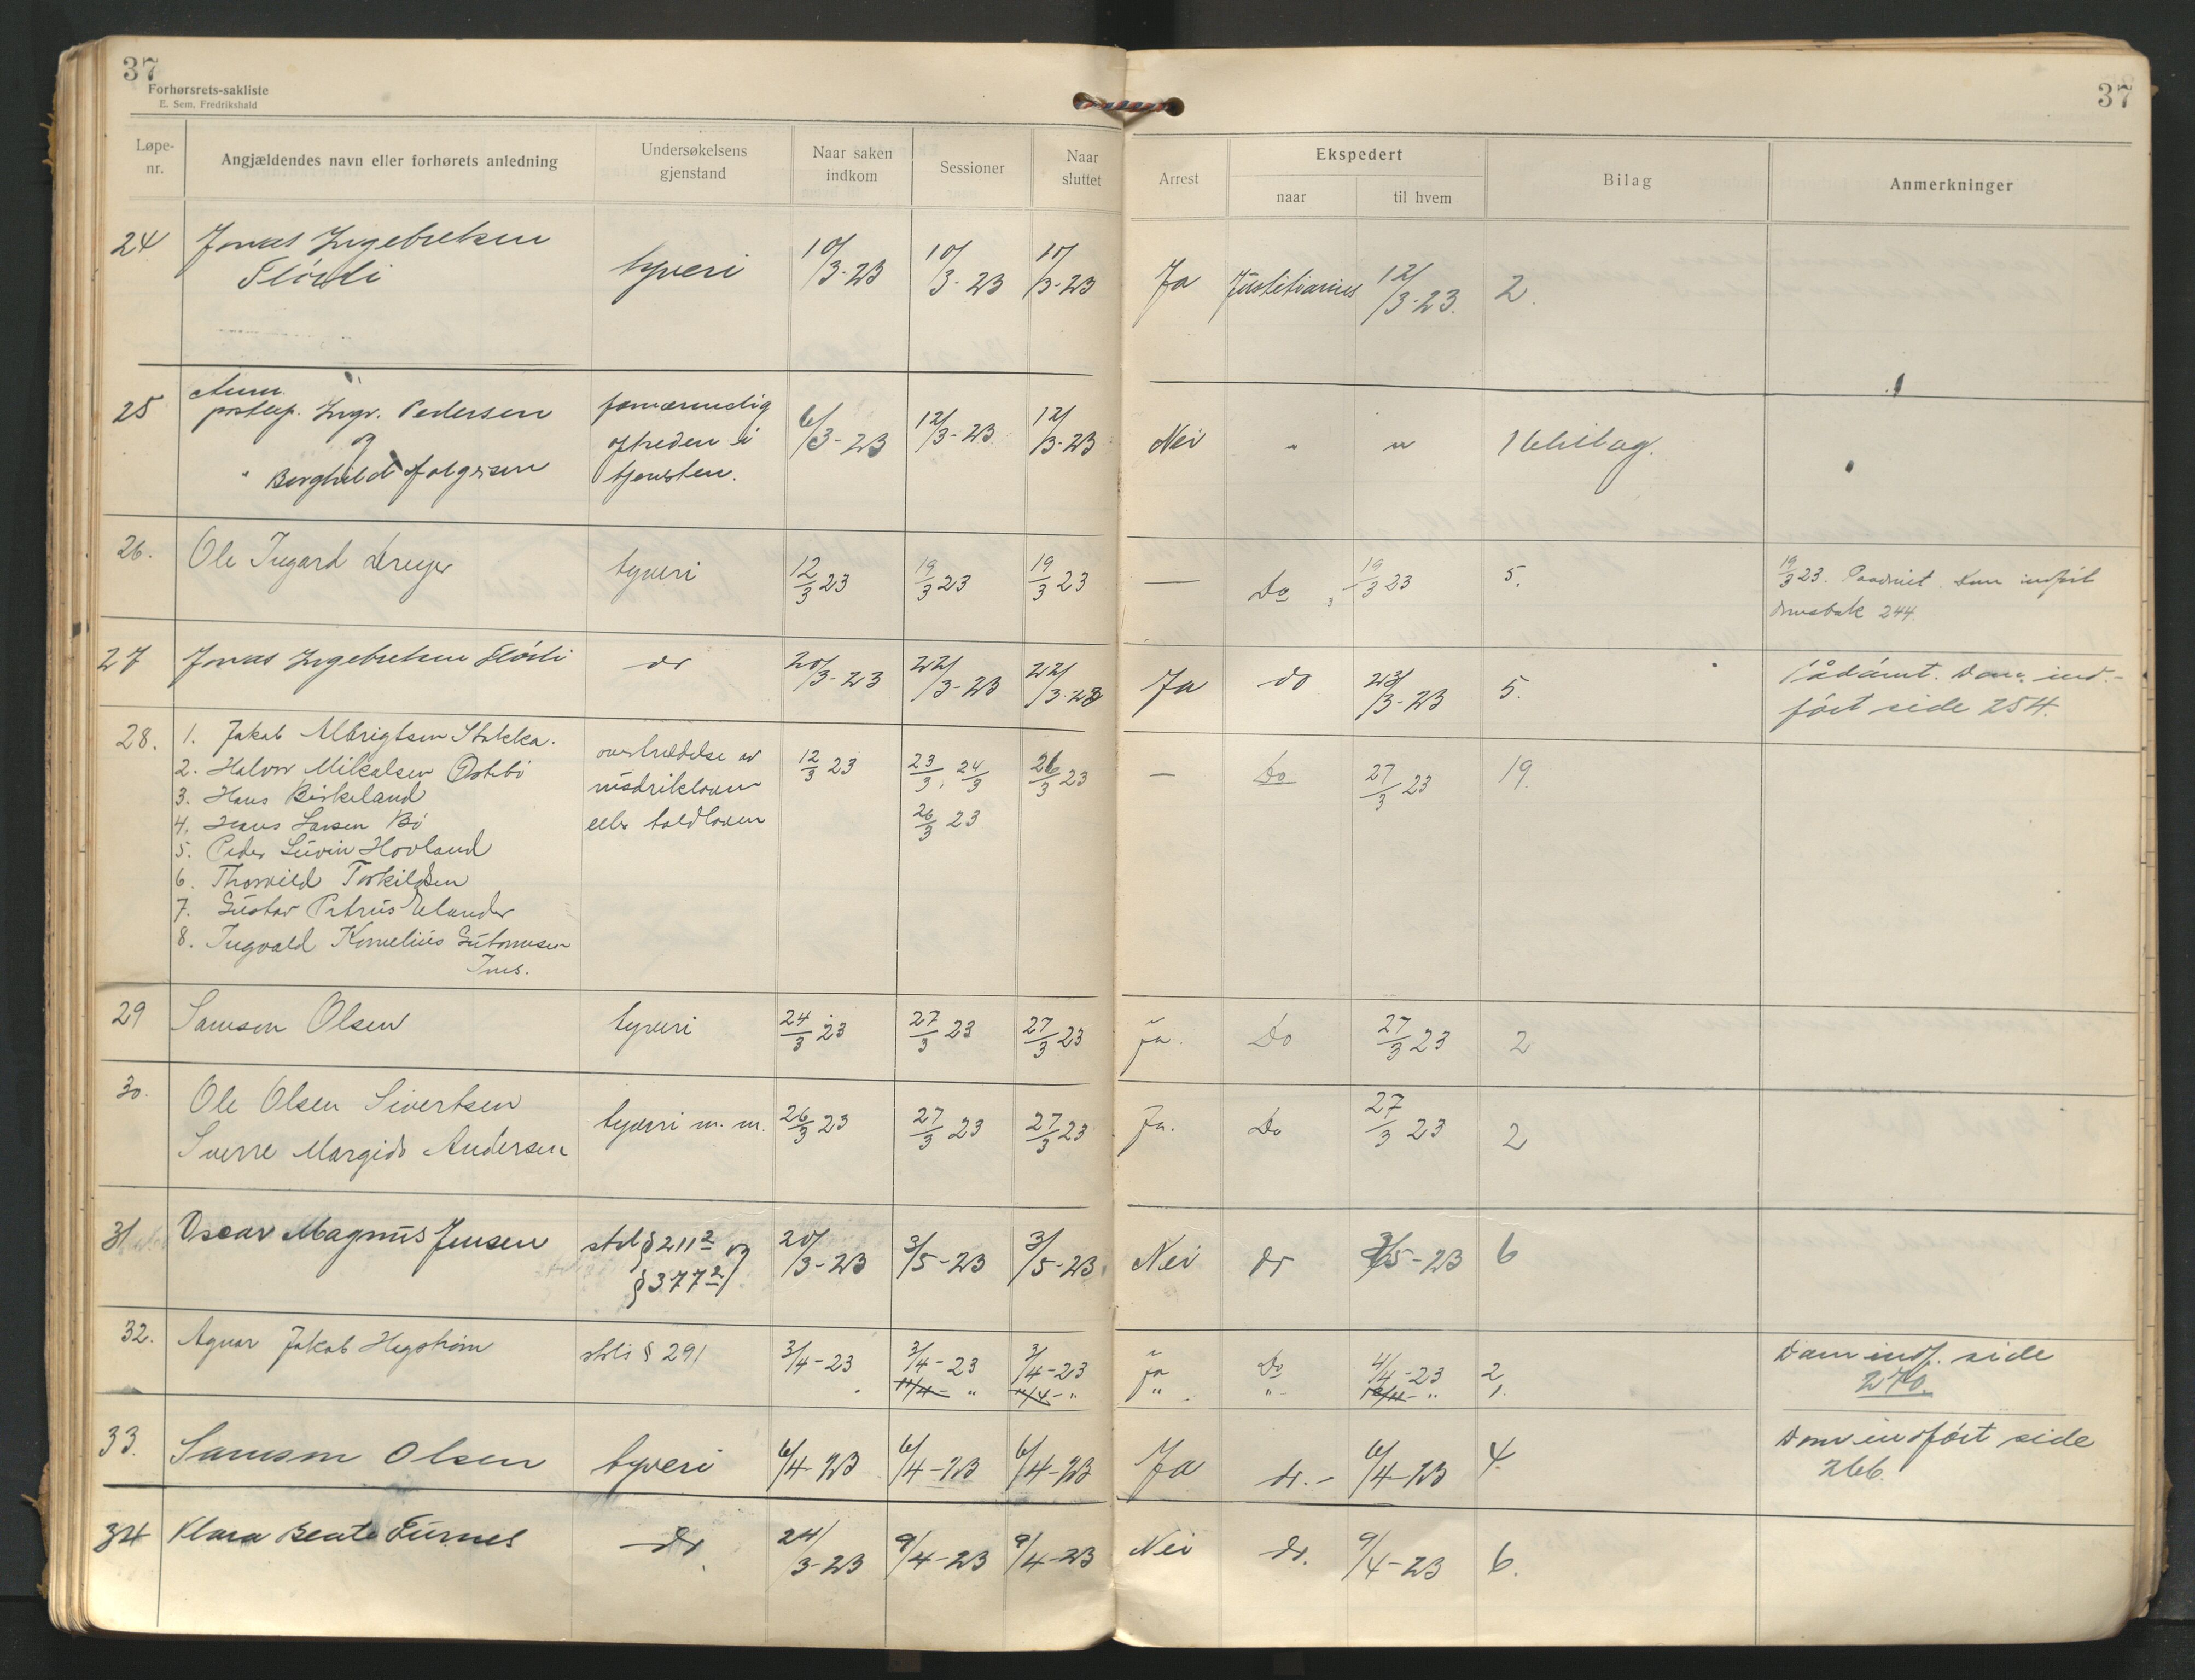 37
Forhørsrets-sakliste
E. Sem, Fredrikshald
37
Løpe-nr.
Angjældendes navn eller forhørets anledning
Undersøkelsens gjenstand
Naar saken indkom
Sessioner
Naar sluttet
Arrest
Ekspedert
naar
til hvem
Bilag
Anmerkninger
24 Jonas Ingebretsen tyveri 10/3-23 10/3-23 10/3-23 Ja Justitiarius 12/3-23. 2.
25 postexp. Ingv. Pedersen 6/3-23 12/3-23 12/3-23 Nei " " 1 bilag.
og
" Borghild
optreden i
tjenesten.
26. Ole Ingard tyveri 12/3 23 19/3 23 19/3 23 — Do 19/3 23 5. 19/3 23. Paadømt. Dom indført
244.
27 Jonas Ingebretsen do 20/3-23 22/3-23 22/3-23 Ja do 23/3-23 5. Pådømt. Dom ind-
ført side 254.
28. 1. Jakob Albrigtsen Stokka. overtrædelse av 12/3 23 23/3, 24/3 26/3 23 — Do 27/3 23 19.
2. Halvor Mikalsen Østebø
3. Hans Birkeland
4. Hans Larsen Bø eller toldloven 26/3 23
5. Peder Hovland
6. Thorvild Torkildsen
7. Gustav Petrus Elander
8. Ingvald Kornelius Guttormsen
29 Samson Olsen tyveri 24/3 23 27/3 23 27/3 23 Ja. Do 27/3 23 2
30. Ole Olsen Sivertsen tyveri m. m. 26/3 23 27/3 23 27/3 23 Ja. Do 27/3 23 2
Sverre Margido Andersen
31 Oscar Magnus Jensen stl § 211 2 og 20/3-23 3/5-23 3/5-23 Nei do 3/5-23 6
§ 377 2
32. Agnar Jakob Hegstrøm § 291 3/4-23 3/4-23 3/4-23 Ja Do 4/4-23 2 Dom indf. side
11/4- " 11/4- " " " " 1. 270.
33. Samson Olsen tyveri 6/4-23 6/4-23 6/4-23 Ja do.- 6/4-23 4 Dom indført side
266.
34 Klara Beate Furnes do 24/3-23 9/4-23 9/4-23 Nei do. 9/4-23 6.